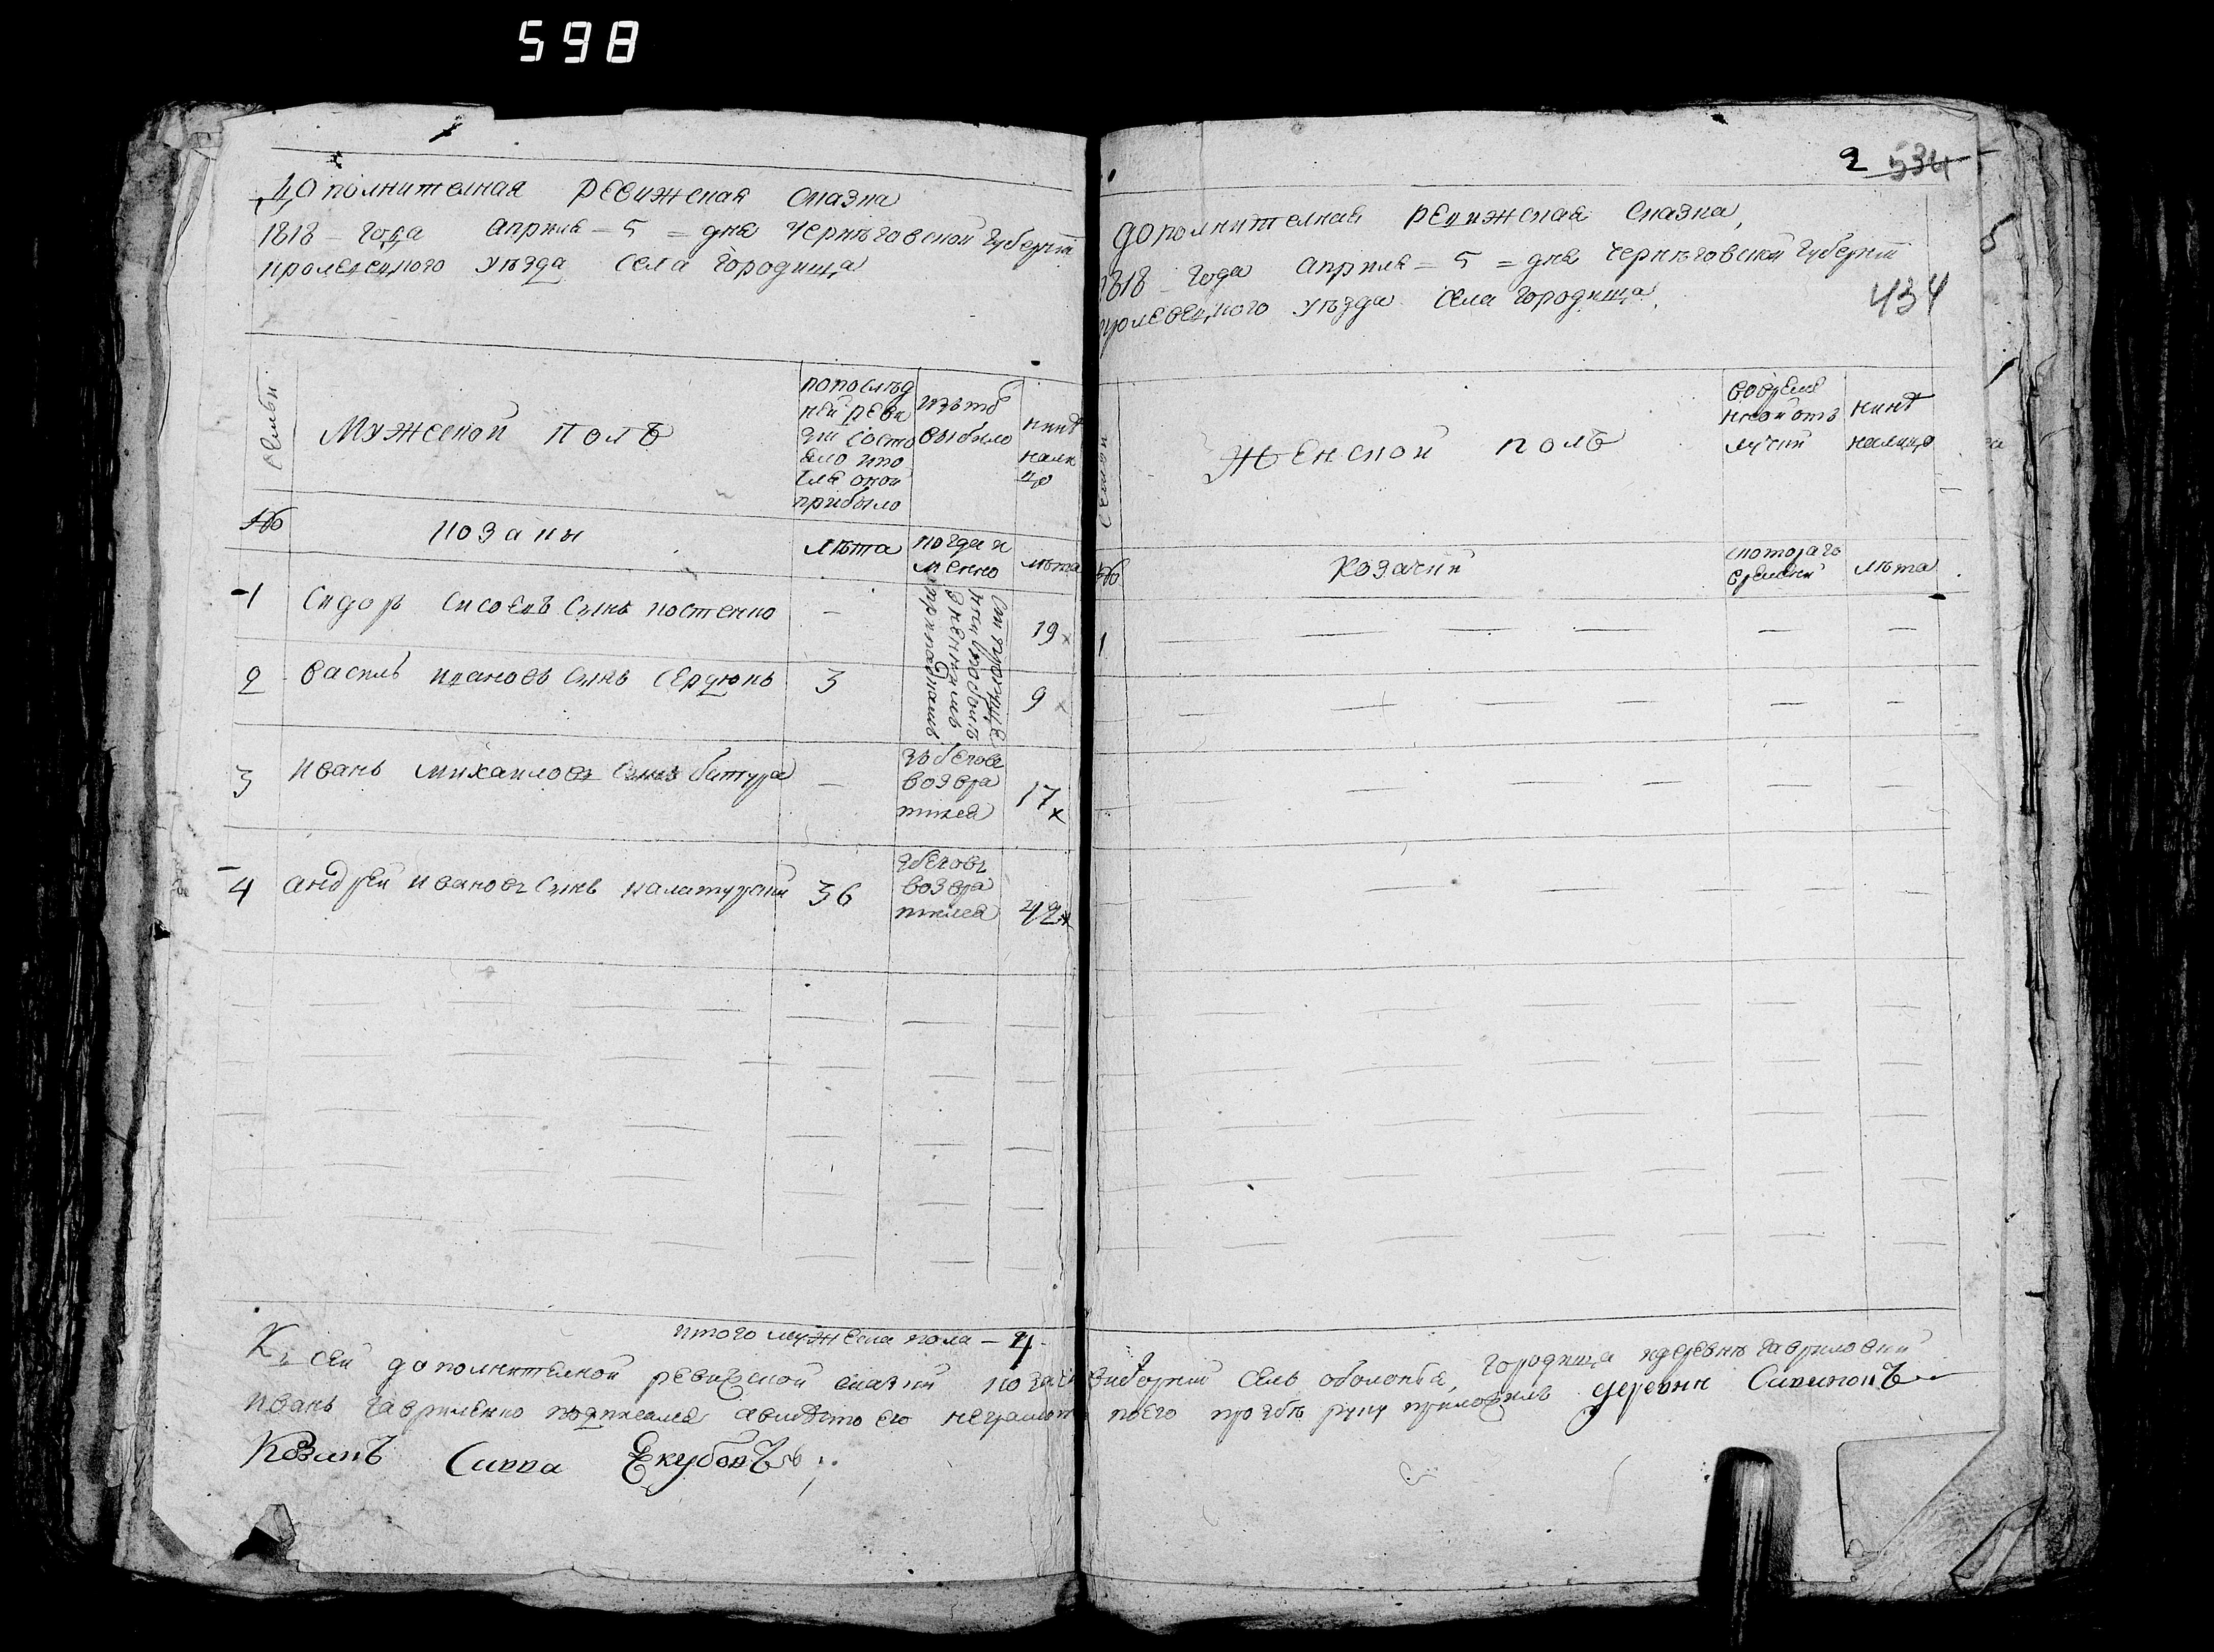 598
Дополнителная ревижская сказка
1818 – года априля – 5 = дня Черниговской Губернїи
Кролевецкого уѣзда села Городища
семьи
Мужеской полъ
по послѣд
ней реви
зїи состо
яло и по
сля оной
прибыло
изъ того
выбыло
нинѣ
нали
цо
№
козаки
лѣта
когда и
менно
лѣта
1 Сидоръ Сисоевъ сынъ Костенко – 19
2 Василь Ивановъ сынъ Сердюкъ 3 9
3 Иванъ Михаиловъ сынъ Батура – 17
зъ бегов
возвра
тился
4 Андрей Ивановъ сынъ 36 42
з беговъ
возвра
тился
итого мужеска пола – 4
2 534
434
Дополнителная ревижская сказка,
1818 – года априля – 5 = дня Черниговской Губернїи
Кролевецкого уѣзда села Городища,
семьи
Женской полъ
во время
нной отъ
лучки
нинѣ
налицо
№
козачки
с которого
времени
лѣта
1
К сей дополнителной ревижской сказки козакъ виборний селъ Оболонья, Городища и деревнѣ Гавриловки
Иванъ Гавриленко подписался а вмѣсто его неграмотн по его прозбѣ руку приложилъ деревни
Козакъ Савва Екубовъ